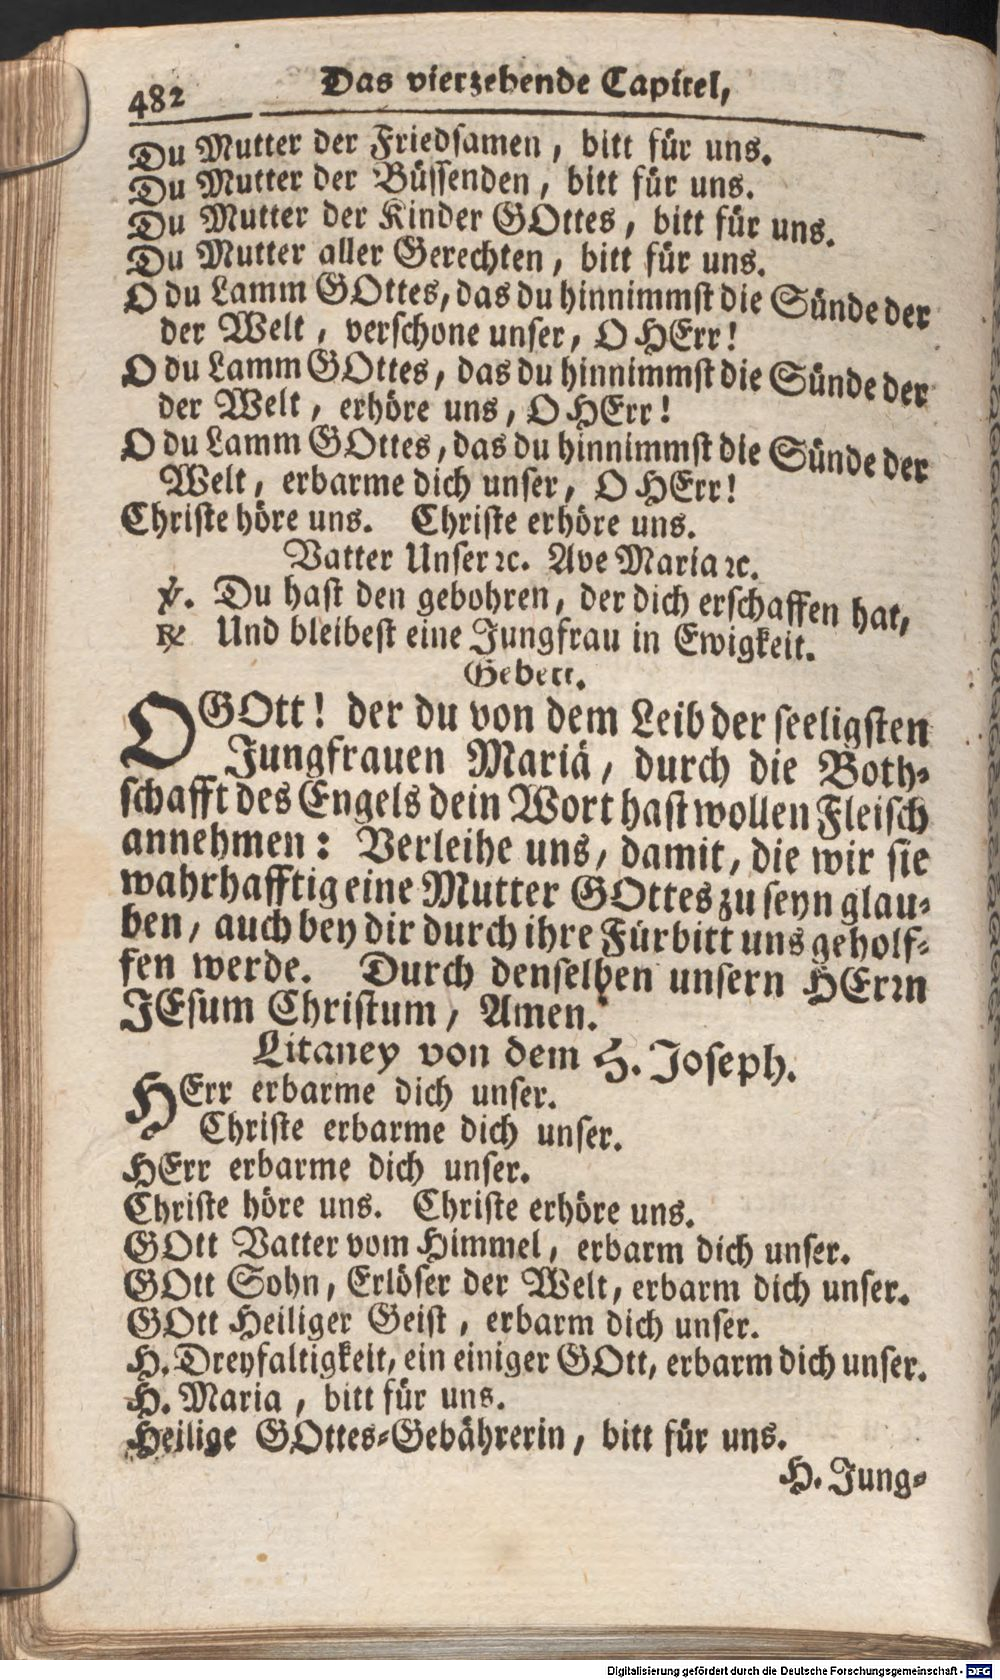 482 Das vierzehende Capitel,
Du Mutter der Friedsamen, bitt für uns.
Du Mutter der Büssenden, bitt für uns.
Du Mutter der Kinder GOttes, bitt für uns.
Du Mutter aller Gerechten, bitt für uns.
O du Lamm GOttes, das du hinnimmst die Sünde der
der Welt, verschone unser, O HErr!
O du Lamm GOttes, das du hinnimmst die Sünde der
der Welt, erhöre uns, O HErr!
O du Lamm GOttes, das du hinnimmst die Sünde der
Welt, erbarme dich unser, O HErr!
Christe höre uns. Christe erhöre uns.
Vatter Unser ꝛc. Ave Maria ꝛc.
℣. Du hast den gebohren, der dich erschaffen hat,
℟ Und bleibest eine Jungfrau in Ewigkeit.
Gebett.
O GOtt! der du von dem Leib der seeligsten
Jungfrauen Mariä, durch die Both-
schafft des Engels dein Wort hast wollen Fleisch
annehmen: Verleihe uns, damit, die wir sie
wahrhafftig eine Mutter GOttes zu seyn glau-
ben, auch bey dir durch ihre Fürbitt uns geholf-
fen werde. Durch denselben unsern HErrn
JEsum Christum, Amen.
Litaney von dem H. Joseph.
HErr erbarme dich unser.
Christe erbarme dich unser.
HErr erbarme dich unser.
Christe höre uns. Christe erhöre uns.
GOtt Vatter vom Himmel, erbarm dich unser.
GOtt Sohn, Erlöser der Welt, erbarm dich unser.
GOtt Heiliger Geist, erbarm dich unser.
H. Dreyfaltigkeit, ein einiger GOtt, erbarm dich unser.
H. Maria, bitt für uns.
Heilige GOttes-Gebährerin, bitt für uns.
H. Jung-
Digitalisierung gefördert durch die Deutsche Forschungsgemeinschaft - DFG